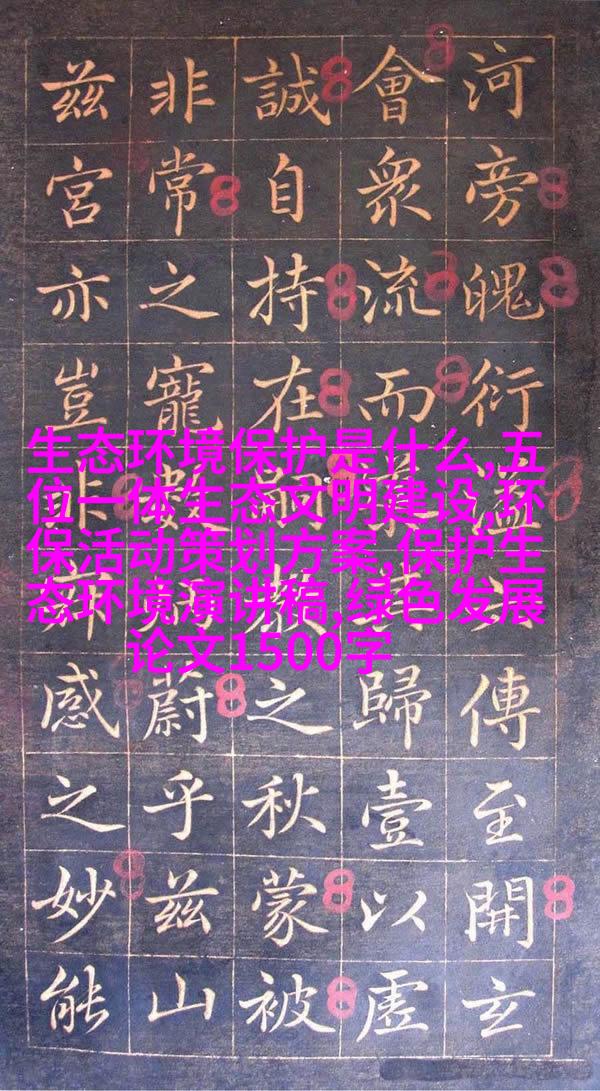 河旁魄衍傳至開玄
會衆流而歸壹以虛
誠自持在之秋蒙被
非常之寵蔚乎兹山
兹宮亦豈感之妙能
生态环境保护是什么,五
位一体生态文明建设,环
保活动策划方案,保护生
态环境演讲稿,绿色发展
论文1500字